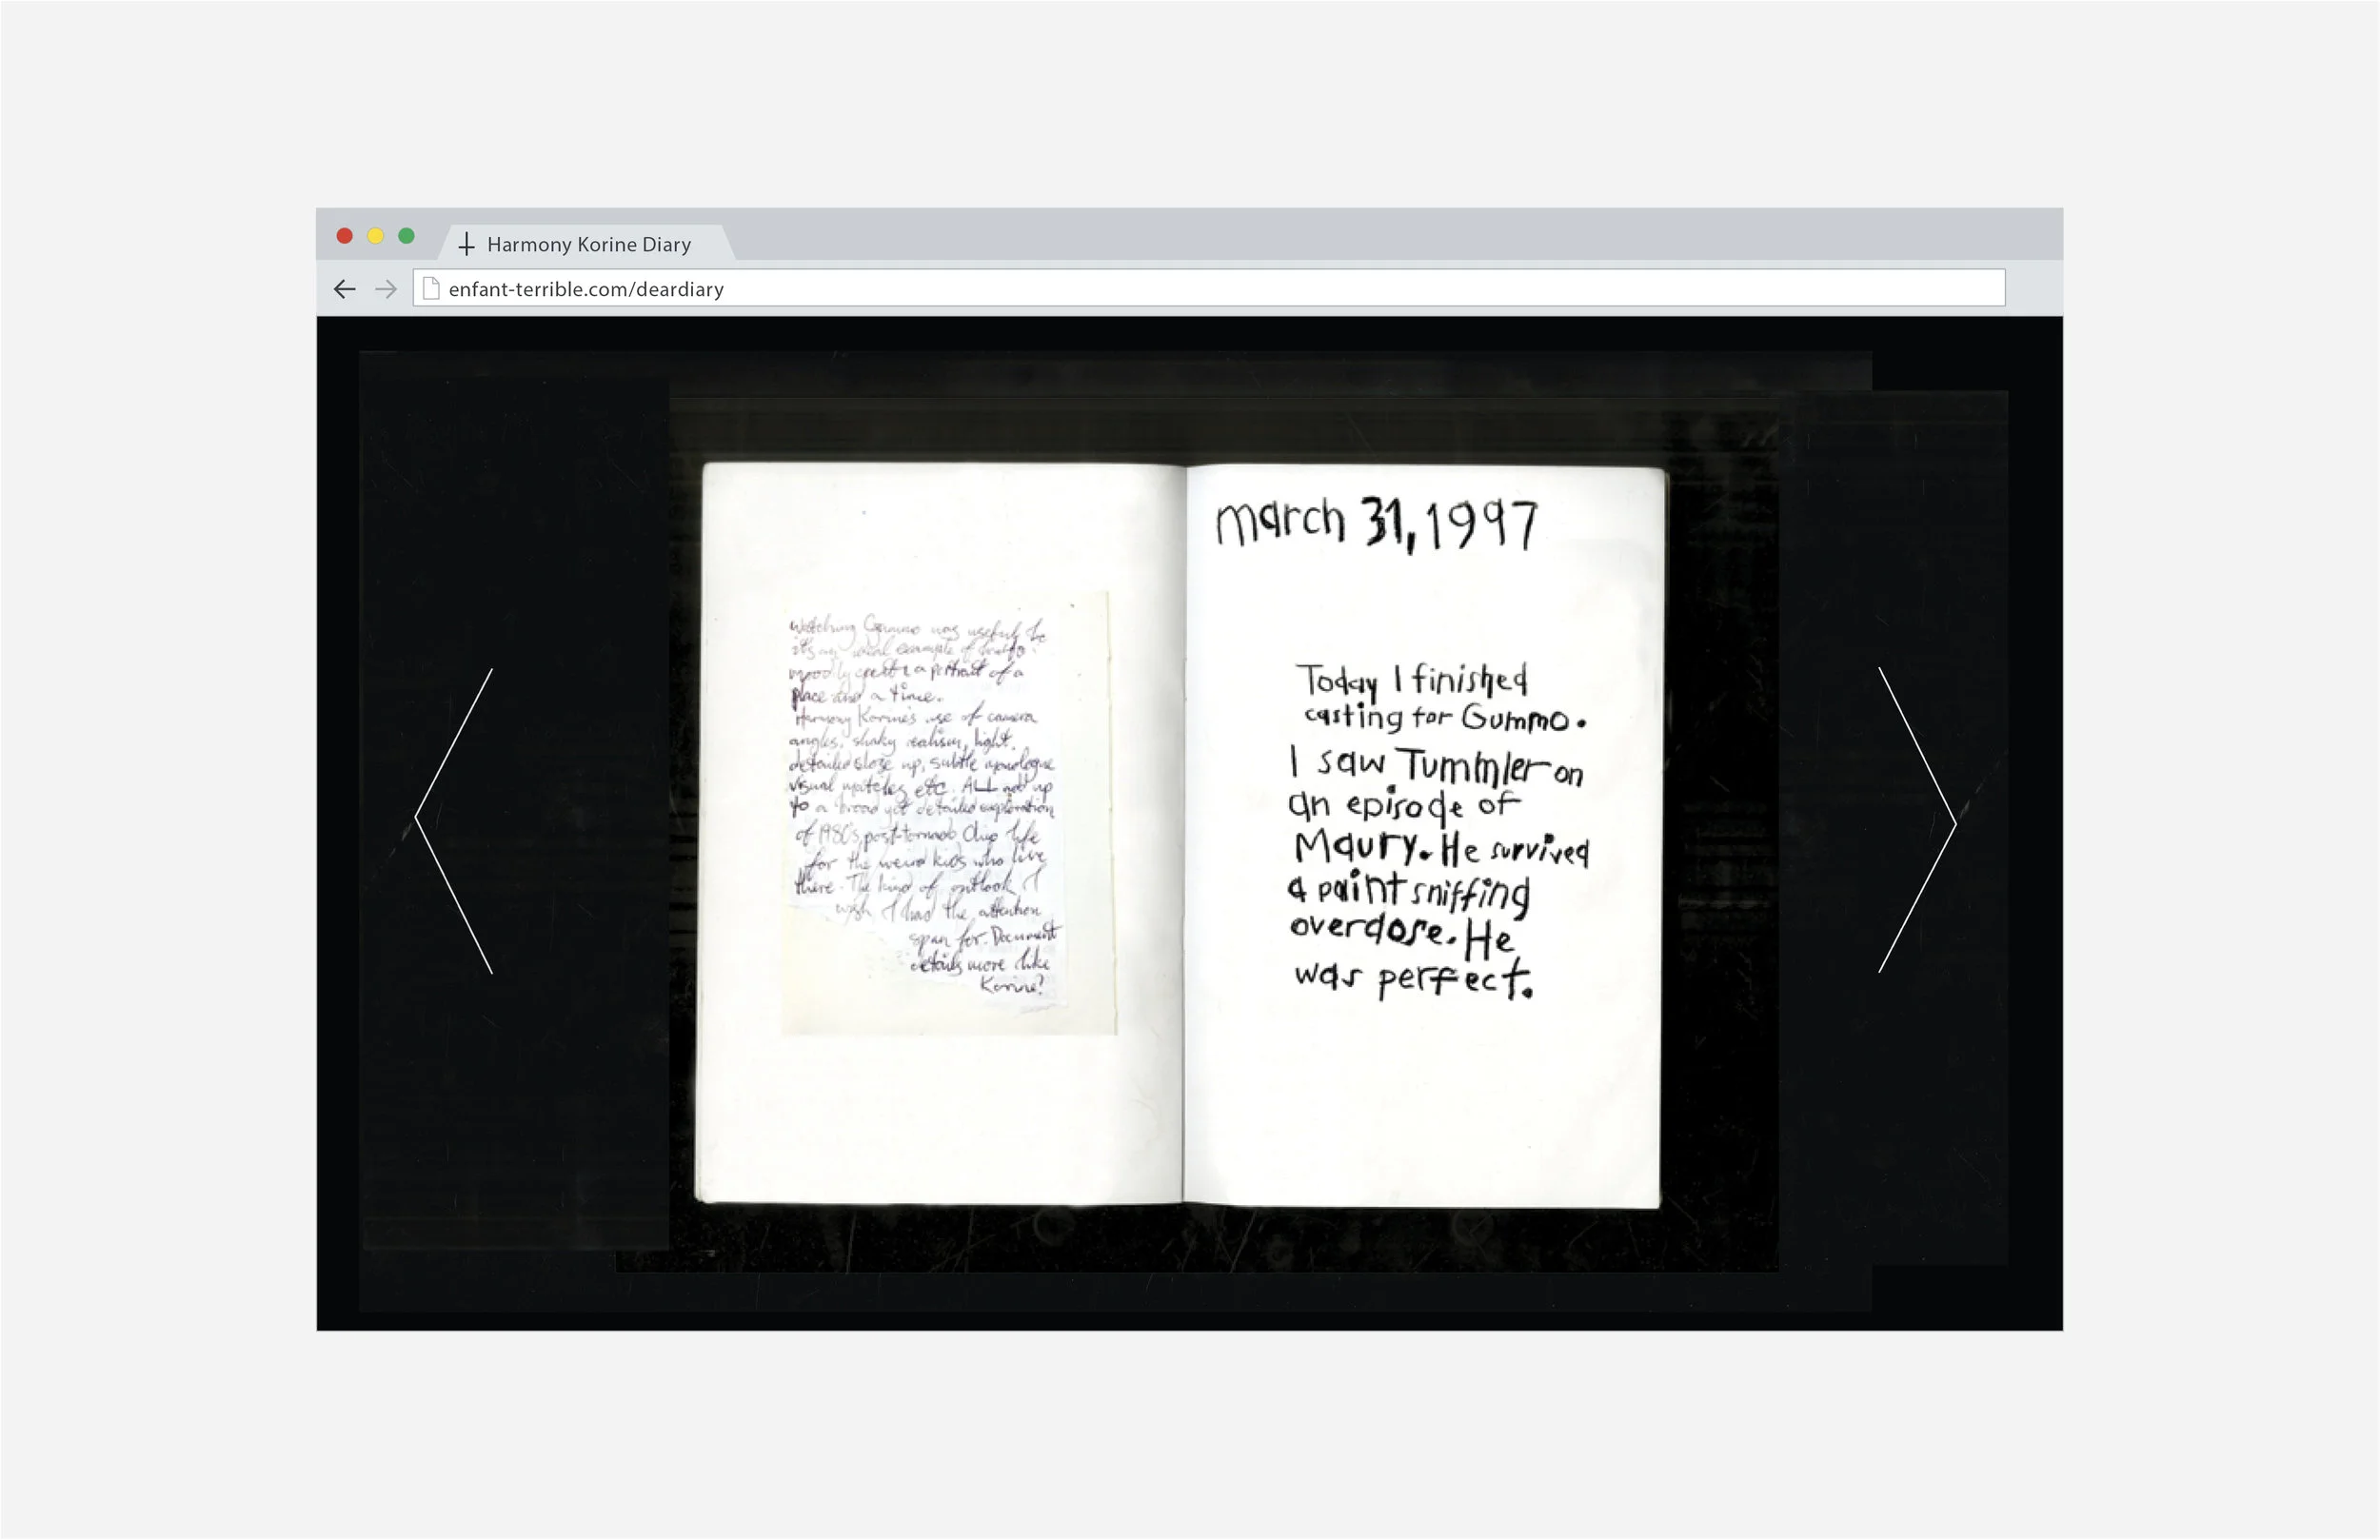 Harmony Korine Diary
enfant-terrible.com/deardiary
watching Gummo was useful
its an ideal example of
moodily create a portrait of a
place and a time.
Harmony Korine's use of camera
angles, shaky realism, light,
detailed close up, subtle
visual matches etc. ALL add up
to a broad yet detailed exploration
of 1980s post-tornado Ohio life
for the weird kids who live
there. The kind of outlook I
wish I had the attention
span for. Document
details more like
Korine?
march 31, 1997
Today I finished
casting for Gummo.
I saw Tummler on
an episode of
Maury. He survived
a paint sniffing
overdose. He
was perfect.